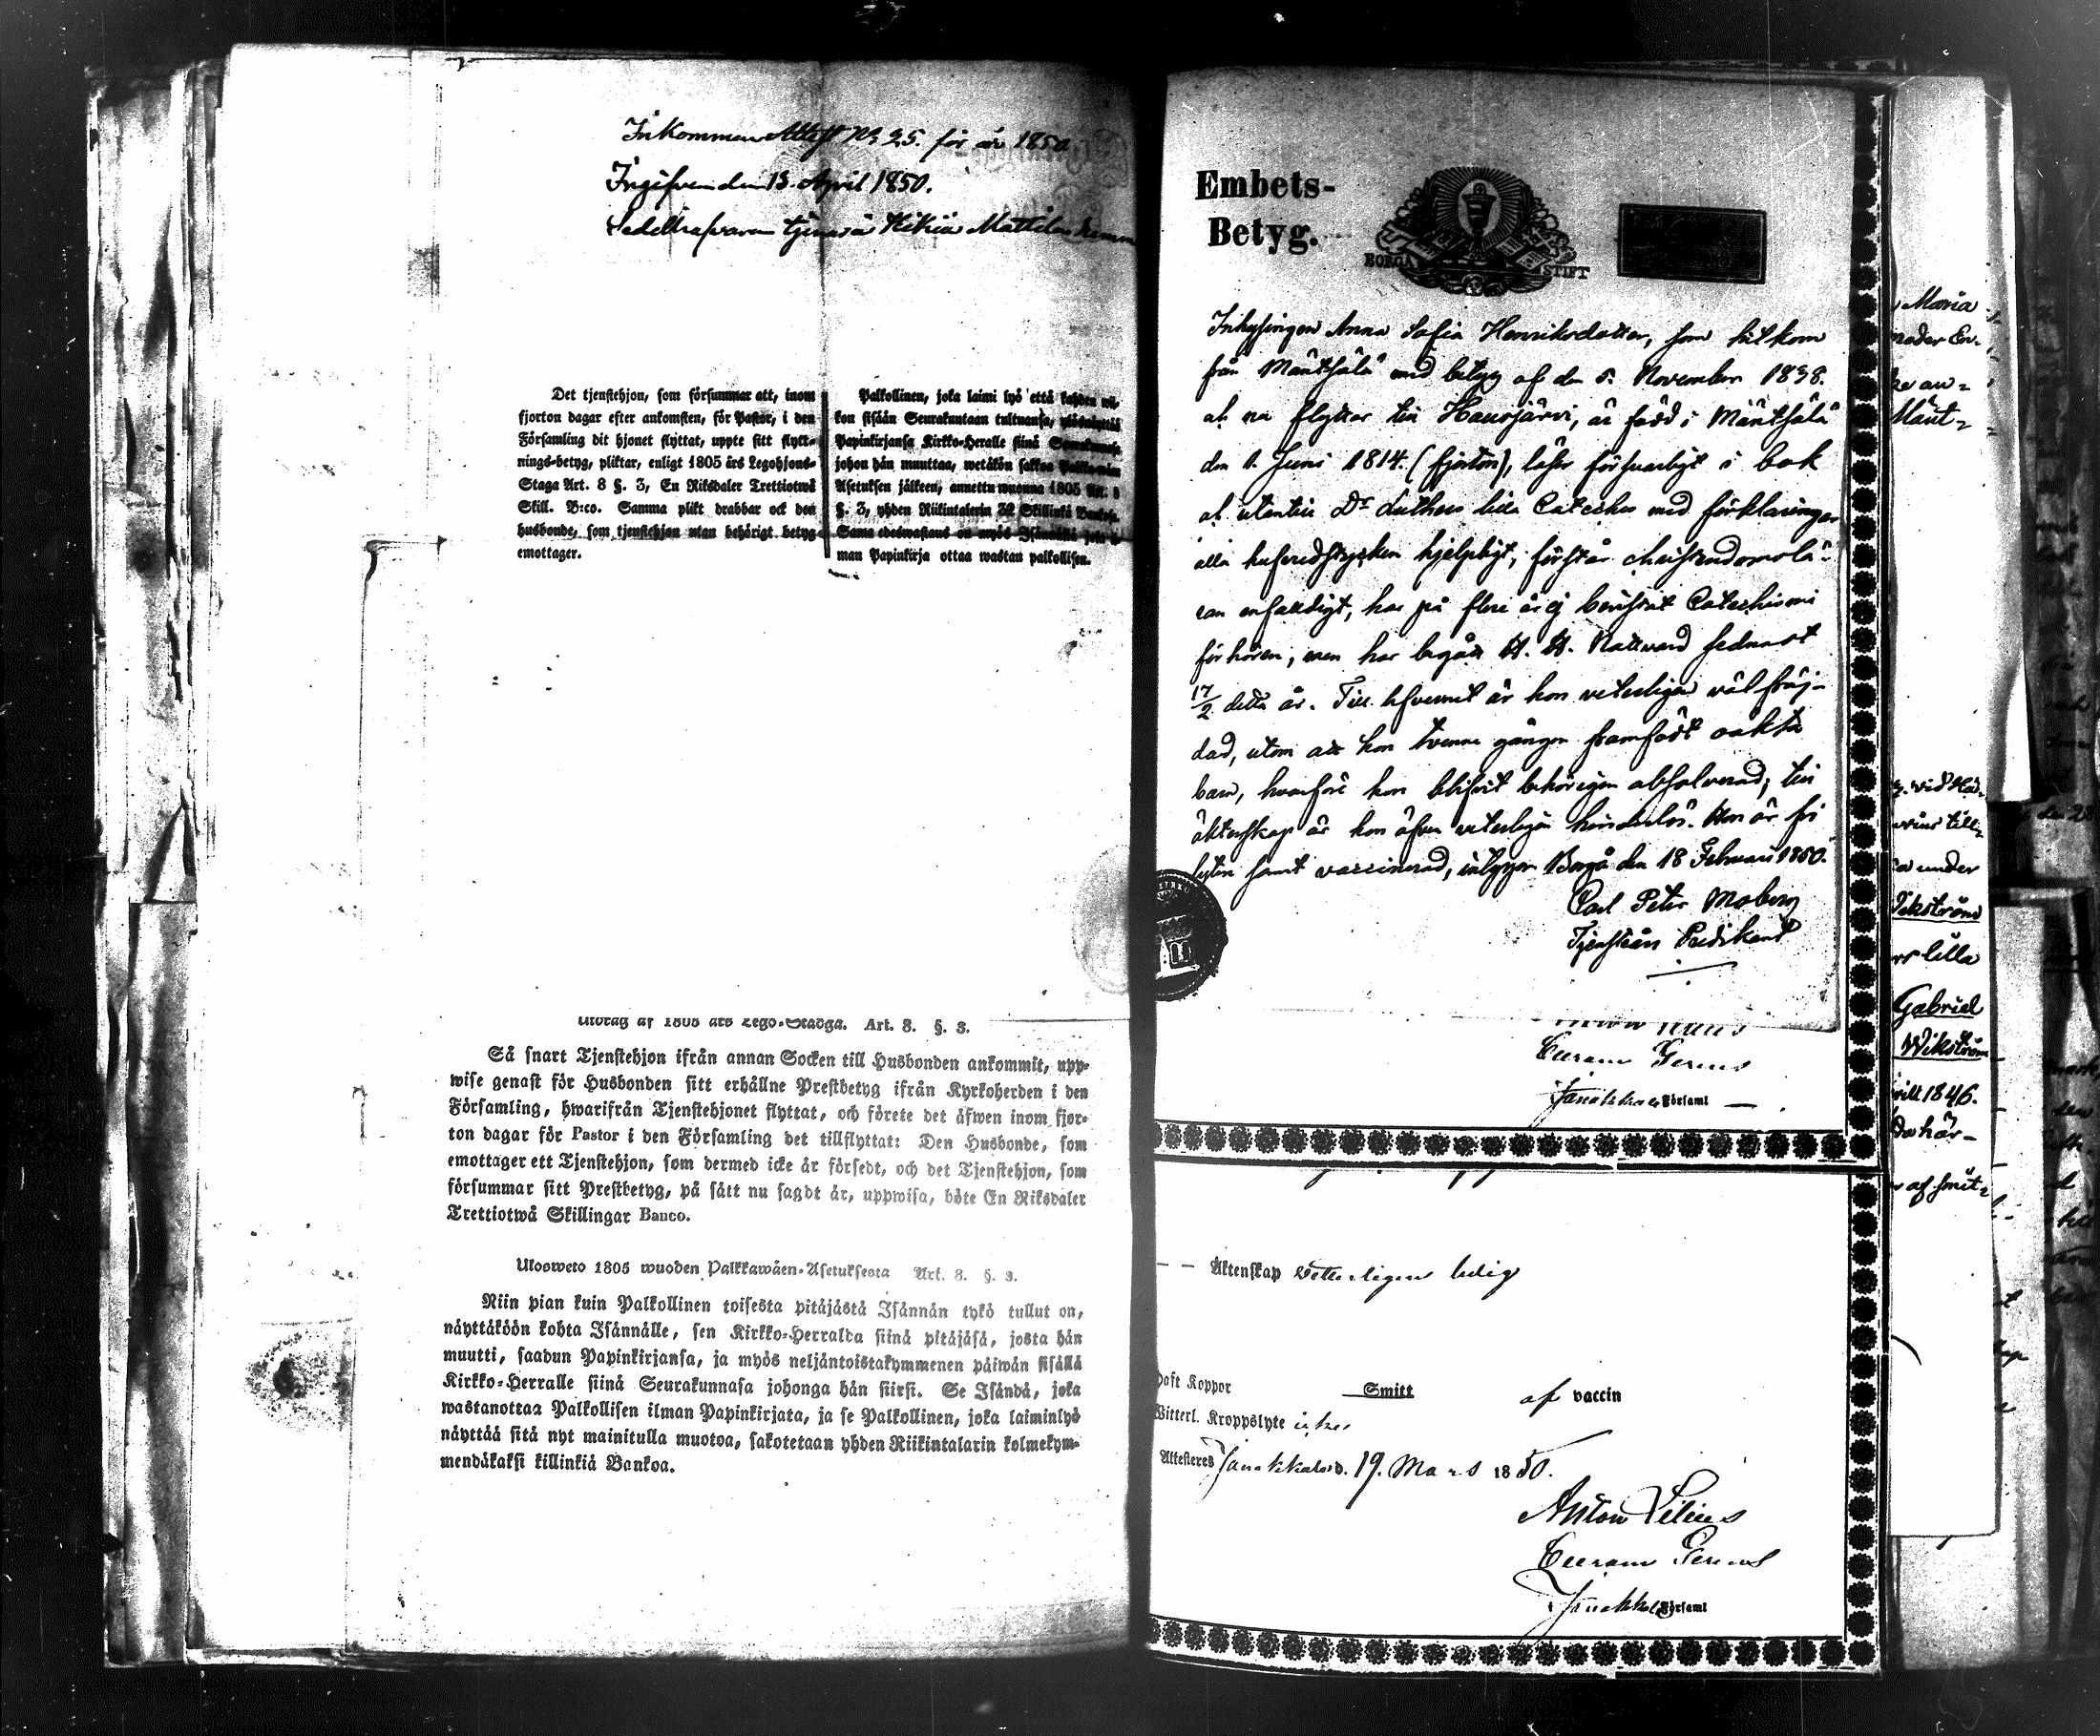 Inkommen Attest No 25. för år 1850
Ingifven den 13. April 1850.
Sedelhafvaren tjenar å Hikiä Mattilas
Det tjenstehjon, som försummar att, inom
fjorton dagar efter ankomsten, för Pastor, i den
Församling dit hjonet flyttat, uppte sitt flytt-
nings-betyg, pliktar, enligt 1805 års Legohjons-
Staga Art. 8 §. 3, En Riksdaler Trettiotwå
Skill. B:co. Samma plikt drabbar ock den
husbonde, som tjenstehjon utan behörigt betyg
emottager.
Palkollinen, joka laimi lyö että kahden wii-
kon sisään Seurakuntaan tultuansa, ylösnäyttää
Papinkirjansa Kirkko-Heralle siinä Seurakunnasa
johon hän muuttaa, wetäkön sakkoa Palkkawäen
Asetuksen jälkeen, annettu wuonna 1805 Art. 8
§. 3, yhden Riikintalerin 32 Skillinkiä Bankosa.
Sama edeswastaus on myös Isännällä joka il-
man Papinkirja ottaa wastan palkollisen.
Utdrag af 1805 års Lego-Stadga. Art. 8. §. 3.
Så snart Tjenstehjon ifrån annan Socken till Husbonden ankommit, upp-
wise genast för Husbonden sitt erhållne Prestbetyg ifrån Kyrkoherden i den
Församling, hwarifrån Tjenstehjonet flyttat, och förete det äfwen inom fjor-
ton dagar för Pastor i den Församling det tillflyttat: Den Husbonde, som
emottager ett Tjenstehjon, som dermed icke är försedt, och det Tjenstehjon, som
försummar sitt Prestbetyg, på sätt nu sagdt är, uppwisa, böte En Riksdaler
Trettiotwå Skillingar Banco.
Ulosweto 1805 wuoden Palkkawäen-Asetuksesta Art. 8. §. 3.
Niin pian kuin Palkollinen toisesta pitäjästä Isännän tykö tullut on,
näyttäköön kohta Isännälle, sen Kirkko-Herralda siinä pitäjäsä, josta hän
muutti, saadun Papinkirjansa, ja myös neljäntoistakymmenen päiwän sisällä
Kirkko-Herralle siinä Seurakunnasa johonga hän siirsi. Se Isändä, joka
wastanottaa Palkollisen ilman Papinkirjata, ja se Palkollinen, joka laiminlyö
näyttää sitä nyt mainitulla muotoa, sakotetaan yhden Riikintalarin kolmekym-
mendäkaksi killinkiä Bankoa.
Embets-
Betyg.
BORGÅ STIFT
Inhysingen Anna Sofia Henriksdotter, som hitkom
från Mäntsälä med betyg af den 5. November 1838.
at nu flyttar till Hausjärvi, är född i Mäntsälä
den 1. Juni 1814. (fjorton), läser försvarligt i bok
at utantill Dr Luthers lilla Cateches med förklaringen
alla hufvudstycken hjelpligt, förstår christendomslä-
ran enfaldigt, har på flere år ej bevistat Catechismi
förhören, men har begått H. H. Nattvard sednast
17/2 detta år. Till lefvernet är hon veterligen välfräj-
dad, utom att hon tvenne gånger framfödt oäkta
barn, hvarföre hon blifvit behörigen absolverad; till
äktenskap är hon äfven veterligen hinderlös. Hon är fri
lyten samt vaccinerad, intygar Borgå den 18 Februari 1850.
Carl Peter Moberg
Tjenstgör. Predikant
Janakkala Församl
Äktenskap vetterligen ledig
Haft Koppor Smitt af vaccin
Witterl. Kroppslyte icke
Attesteras Janakkala d. 19. Mars 1850.
Anton Lilius
Janakkala Församl
Maria
Mänt-
Wikström
lilla
Gabriel
Wikström
1846.